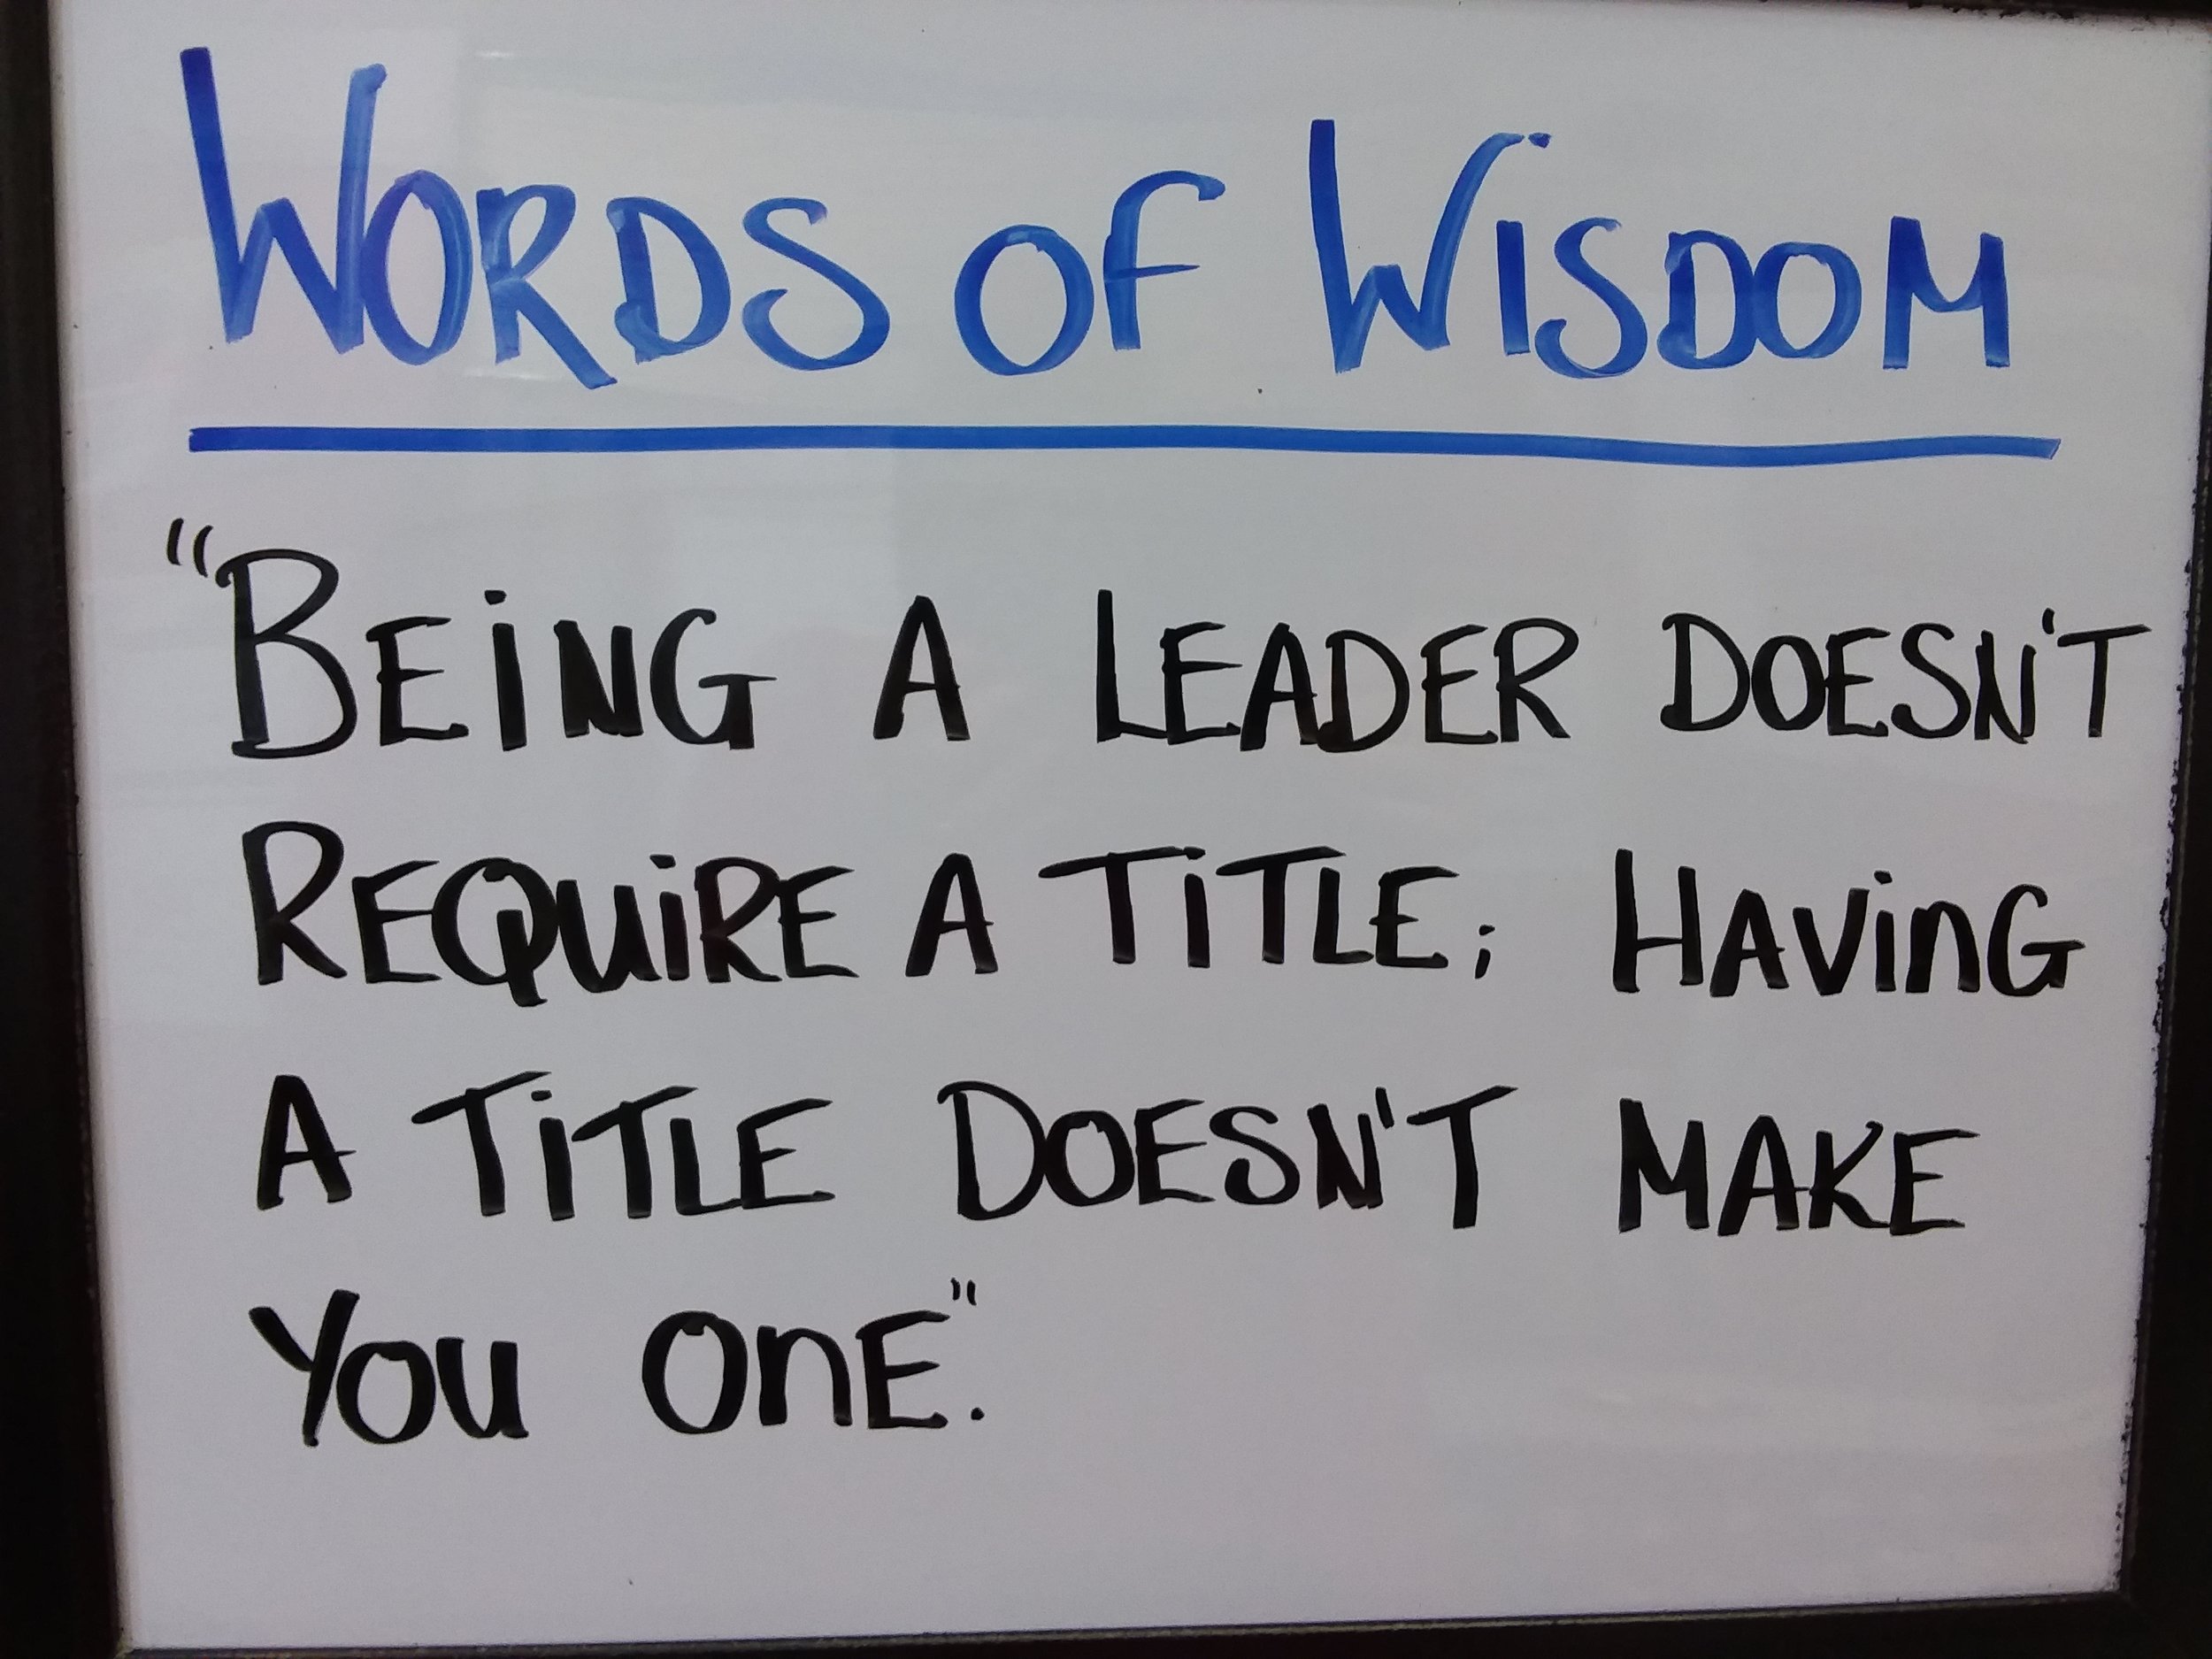 WORDS OF WISDOM
"BEiNG A LEADER DOESN'T
REQUiRE A TiTLE; HAViNG
A TiTLE DOESN'T MAKE
YOU ONE".